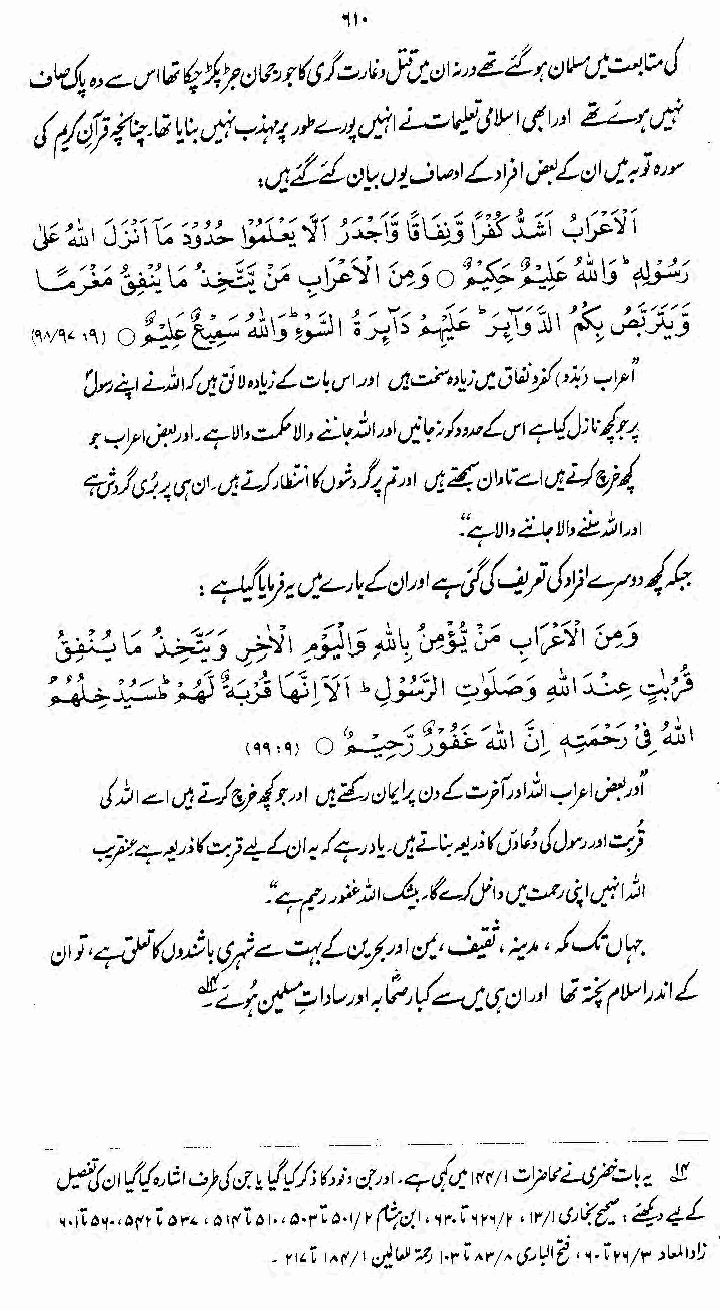 ٦١٠
کی متابعت میں مسلمان ہوگئے تھے ورنہ ان میں قتل و غارت گری کا جو رجحان جڑ پکڑ چکا تھا اس سے وہ پاک صاف
نہیں ہوئے تھے اور ابھی اسلامی تعلیمات نے انہیں پورے طور پر مہذب نہیں بنایا تھا۔ چنانچہ قرآن کریم کی
سورہ توبہ میں ان کے بعض افراد کے اوصاف یوں بیان کئے گئے ہیں:
اَلْاَعْرَابُ اَشَدُّ كُفْرًا وَّنِفَاقًا وَّاَجْدَرُ اَلَّا يَعْلَمُوْا حُدُوْدَ مَآ اَنْزَلَ اللّٰهُ عَلٰى
رَسُوْلِهٖ ؕ وَاللّٰهُ عَلِيْمٌ حَكِيْمٌ ○ وَمِنَ الْاَعْرَابِ مَنْ يَّتَّخِذُ مَا يُنْفِقُ مَغْرَمًا
وَّيَتَرَبَّصُ بِكُمُ الدَّوَآئِرَ ؕ عَلَيْهِمْ دَآئِرَةُ السَّوْءِ ؕ وَاللّٰهُ سَمِيْعٌ عَلِيْمٌ ○ (٩: ٩٧/٩٨)
”اعراب (بدو) کفر و نفاق میں زیادہ سخت ہیں اور اس بات کے زیادہ لائق ہیں کہ اللہ نے اپنے رسولؐ
پر جو کچھ نازل کیا ہے اس کے حدود کو نہ جانیں اور اللہ جاننے والا حکمت والا ہے۔ اور بعض اعراب جو
کچھ خرچ کرتے ہیں اسے تاوان سمجھتے ہیں اور تم پر گردشوں کا انتظار کرتے ہیں۔ ان ہی پر بُری گردش ہے
اور اللہ سننے والا جاننے والا ہے“۔
جبکہ کچھ دوسرے افراد کی تعریف کی گئی ہے اور ان کے بارے میں یہ فرمایا گیا ہے:
وَمِنَ الْاَعْرَابِ مَنْ يُّؤْمِنُ بِاللّٰهِ وَالْيَوْمِ الْاٰخِرِ وَيَتَّخِذُ مَا يُنْفِقُ
قُرُبٰتٍ عِنْدَ اللّٰهِ وَصَلَوٰتِ الرَّسُوْلِ ؕ اَلَآ اِنَّهَا قُرْبَةٌ لَّهُمْ ؕ سَيُدْخِلُهُمُ
اللّٰهُ فِيْ رَحْمَتِهٖ ؕ اِنَّ اللّٰهَ غَفُوْرٌ رَّحِيْمٌ ○ (٩: ٩٩)
”اور بعض اعراب اللہ اور آخرت کے دن پر ایمان رکھتے ہیں اور جو کچھ خرچ کرتے ہیں اسے اللہ کی
قُربت اور رسول کی دُعاؤں کا ذریعہ بناتے ہیں۔ یاد رہے کہ یہ ان کے لیے قربت کا ذریعہ ہے عنقریب
اللہ انہیں اپنی رحمت میں داخل کرے گا۔ بیشک اللہ غفور رحیم ہے“۔
جہاں تک مکہ، مدینہ، ثقیف، یمن اور بحرین کے بہت سے شہری باشندوں کا تعلق ہے، تو ان
کے اندر اسلام پختہ تھا اور ان ہی میں سے کبار صحابہؓ اور سادات مسلمین ہُوئے۔ ۱۴
۱۴ یہ بات خضری نے محاضرات ۱/۱۴۴ میں کہی ہے۔ اور جن وفود کا ذکر کیا گیا یا جن کی طرف اشارہ کیا گیا ان کی تفصیل
کے لیے دیکھئے: صحیح بخاری ۱/۱۳، ۲/۶۲۶ تا ۶۳۰، ابن ہشام ۲/۵۰۱ تا ۵۰۳، ۵۱۰ تا ۵۱۴، ۵۳۷ تا ۵۴۲، ۵۶۰ تا ۶۰۱
زاد المعاد ۳/۲۶ تا ۶۰، فتح الباری ۸/۸۳ تا ۱۰۳ رحمۃ للعالمین ۱/۱۸۴ تا ۲۱۷۔